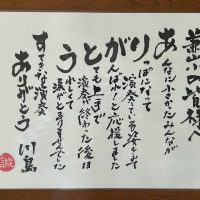 の皆様へ
あんなに小さかったみんなが
りっぱになって
演奏している姿を
がんばれ!と応援しました
とても上手で
演奏が終わった後は
うれしくて
涙がとまりませんでした
すてきな演奏
ありがとう 川島